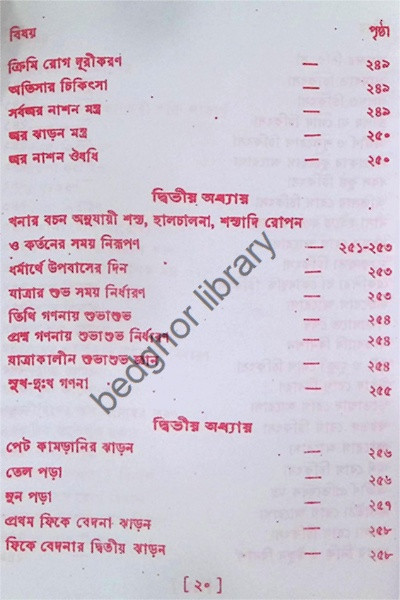 বিষয় পৃষ্ঠা
ক্রিমি রোগ দূরীকরণ — ২৪৯
অতিসার চিকিৎসা — ২৪৯
সর্বজ্বর নাশন মন্ত্র — ২৪৯
জ্বর ঝাড়ন মন্ত্র — ২৫০
জ্বর নাশন ঔষধি — ২৫০
দ্বিতীয় অধ্যায়
খনার বচন অনুযায়ী শস্য, হালচালনা, শস্যাদি রোপন
ও কর্তনের সময় নিরূপণ — ২৫১-২৫৩
ধর্মার্থে উপবাসের দিন — ২৫৩
যাত্রার শুভ সময় নির্ধারণ — ২৫৩
তিথি গণনায় শুভাশুভ — ২৫৪
প্রশ্ন গণনায় শুভাশুভ নির্ধারণ — ২৫৪
যাত্রাকালীন শুভাশুভ জ্ঞান — ২৫৪
সুখ-দুঃখ গণনা — ২৫৫
দ্বিতীয় অধ্যায়
পেট কামড়ানির ঝাড়ন — ২৫৬
তেল পড়া — ২৫৬
নুন পড়া — ২৫৭
প্রথম ফিকে বেদনা ঝাড়ন — ২৫৮
ফিকে বেদনার দ্বিতীয় ঝাড়ন — ২৫৮
[ ২০ ]
bedghor library